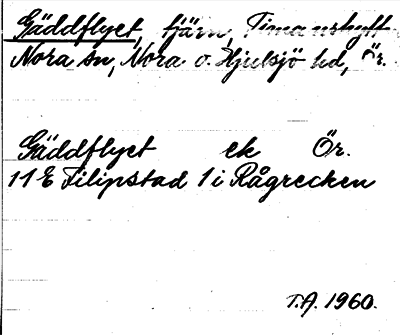 Gäddflyet, tjärn, Timanshytt
Nora sn, Nora o. Hjulsjö hd, Ör.
Gäddflyet ek Ör.
11 E Filipstad 1 i Rågrecken
T.A. 1960.